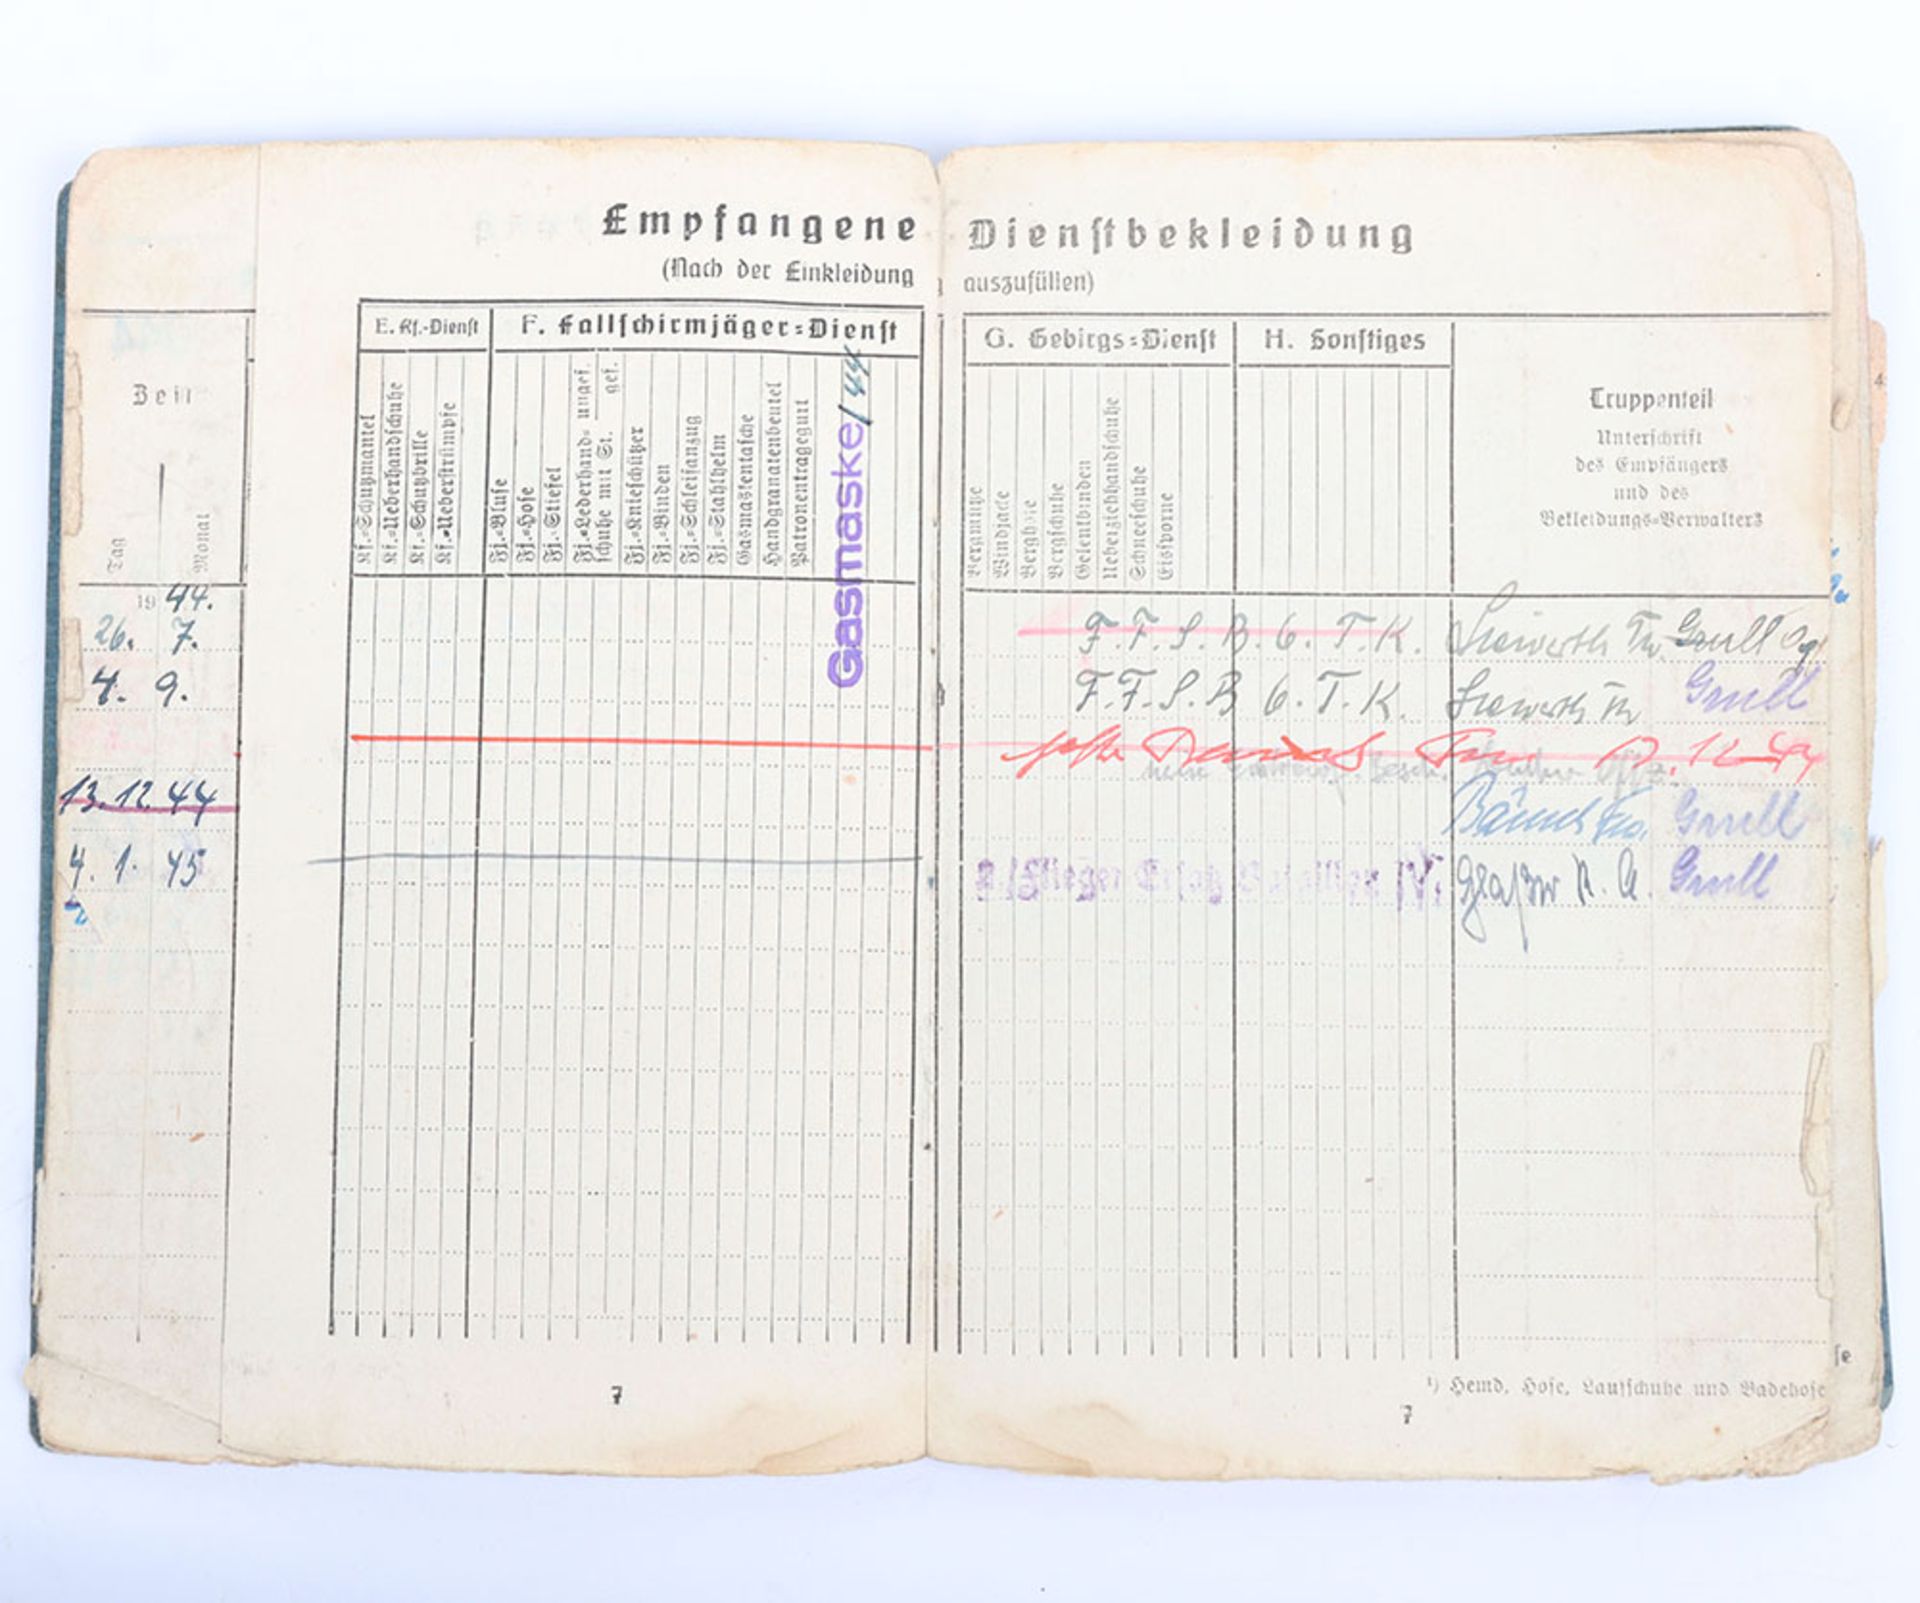 Empfangene Dienstbekleidung
(Nach der Einkleidung auszufüllen)
Zeit
Tag
Monat
E. Kf.-Dienst
F. Fallschirmjäger-Dienst
G. Gebirgs-Dienst
H. Sonstiges
Truppenteil
Unterschrift
des Empfängers
und des
Bekleidungs-Verwalters
Kf.-Schutzmantel
Kf.-Ueberhandschuhe
Kf.-Schutzbrille
Kf.-Ueberstrümpfe
Fj.-Bluse
Fj.-Hose
Fj.-Stiefel
Fj.-Lederhand- ungef.
schuhe mit St. gef.
Fj.-Knieschützer
Fj.-Binden
Fj.-Schleifanzug
Fj.-Stahlhelm
Gasmaskentasche
Handgranatenbeutel
Patronentragegurt
Gasmaske/44
Bergmütze
Windjacke
Berghose
Bergschuhe
Gelenkbinden
Ueberziehhandschuhe
Schneeschuhe
Eissporne
1944.
26. 7. F.F.S.B. 6. T.K. Grull
4. 9. F.F.S.B 6. T.K. Grull
12.44
13.12.44 Grull
4. 1. 45 Flieger Ersatz Bataillon Grull
¹) Hemd, Hose, Laufschuhe und Badehose
7
7